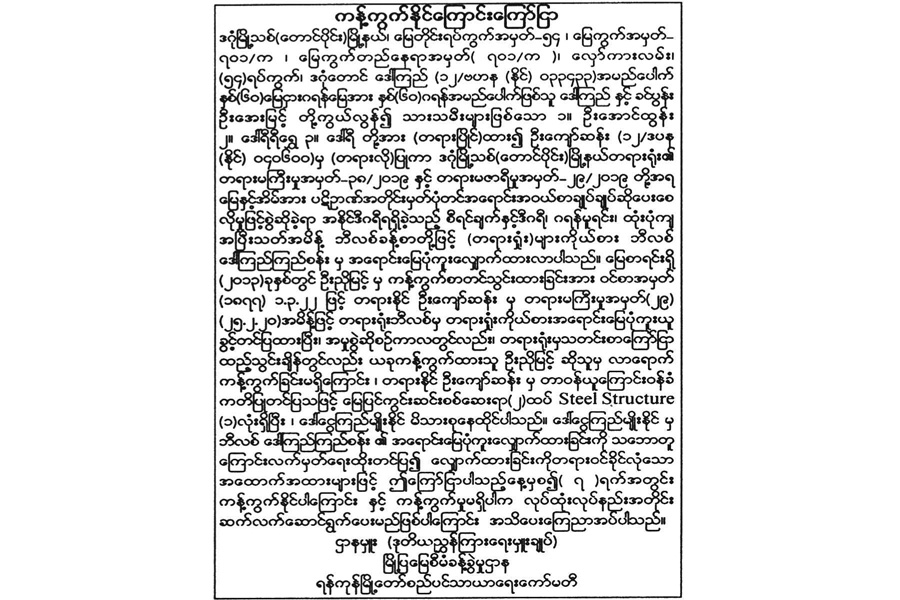 ကန့်ကွက်နိုင်ကြောင်းကြော်ငြာ
ဒဂုံမြို့သစ်(တောင်ပိုင်း)မြို့နယ်၊ မြေတိုင်းရပ်ကွက်အမှတ်–၅၄ ၊ မြေကွက်အမှတ်–
၇၀၁/က ၊ မြေကွက်တည်နေရာအမှတ်( ၇၀၁/က )၊ လှော်ကားလမ်း၊
(၅၄)ရပ်ကွက်၊ ဒဂုံတောင် ဒေါ်ကြည် (၁၂/ဗဟန (နိုင်) ၀၃၃၄၃၃)အမည်ပေါက်
နှစ်(၆၀)မြေငှားဂရန်မြေအား နှစ်(၆၀)ဂရန်အမည်ပေါက်ဖြစ်သူ ဒေါ်ကြည် နှင့် ခင်ပွန်း
ဦးအေးမြင့် တို့ကွယ်လွန်၍ သားသမီးများဖြစ်သော ၁။ ဦးအောင်ထွန်း
၂။ ဒေါ်ရီရီရွှေ ၃။ ဒေါ်ရီ တို့အား (တရားပြိုင်)ထား၍ ဦးကျော်ဆန်း (၁၂/ဒပန
(နိုင်) ၀၄၀၆၀၀)မှ (တရားလို)ပြုကာ ဒဂုံမြို့သစ်(တောင်ပိုင်း)မြို့နယ်တရားရုံး၏
တရားမကြီးမှုအမှတ်–၃၈/၂၀၁၉ နှင့် တရားမဇာရီမှုအမှတ်–၂၉/၂၀၁၉ တို့အရ
မြေနှင့်အိမ်အား ပဋိညာဏ်အတိုင်းမှတ်ပုံတင်အရောင်းအဝယ်စာချုပ်ချုပ်ဆိုပေးစေ
လိုမှုဖြင့်စွဲဆိုခဲ့ရာ အနိုင်ဒီဂရီရရှိခဲ့သည့် စီရင်ချက်နှင့်ဒီဂရီ၊ ဂရန်မူရင်း၊ ထုံးပုံကျ
အပြီးသတ်အမိန့် ဘီလစ်ခန့်စာတို့ဖြင့် (တရားရှုံး)များကိုယ်စား ဘီလစ်
ဒေါ်ကြည်ကြည်စန်း မှ အရောင်းမြေပုံကူးလျှောက်ထားလာပါသည်။ မြေစာရင်းရှိ
(၂၀၁၃)ခုနှစ်တွင် ဦးညိုမြင့် မှ ကန့်ကွက်စာတင်သွင်းထားခြင်းအား ဝင်စာအမှတ်
(၁၈၇၇) ၁.၃.၂၂ ဖြင့် တရားနိုင် ဦးကျော်ဆန်း မှ တရားမကြီးမှုအမှတ်(၂၉)
(၂၅.၂.၂၀)အမိန့်ဖြင့် တရားရုံးဘီလစ်မှ တရားရှုံးကိုယ်စားအရောင်းမြေပုံကူးယူ
ခွင့်တင်ပြထားပြီး၊ အမှုစွဲဆိုစဉ်ကာလတွင်လည်း၊ တရားရုံးမှသတင်းစာကြော်ငြာ
ထည့်သွင်းချိန်တွင်လည်း ယခုကန့်ကွက်ထားသူ ဦးညိုမြင့် ဆိုသူမှ လာရောက်
ကန့်ကွက်ခြင်းမရှိကြောင်း ၊ တရားနိုင် ဦးကျော်ဆန်း မှ တာဝန်ယူကြောင်းဝန်ခံ
ကတိပြုတင်ပြသဖြင့် မြေပြင်ကွင်းဆင်းစစ်ဆေးရာ(၂)ထပ် Steel Structure
(၁)လုံးရှိပြီး ၊ ဒေါ်ငွေကြည်မျိုးနိုင် မိသားစုနေထိုင်ပါသည်။ ဒေါ်ငွေကြည်မျိုးနိုင် မှ
ဘီလစ် ဒေါ်ကြည်ကြည်စန်း ၏ အရောင်းမြေပုံကူးလျှောက်ထားခြင်းကို သဘောတူ
ကြောင်းလက်မှတ်ရေးထိုးတင်ပြ၍ လျှောက်ထားခြင်းကိုတရားဝင်ခိုင်လုံသော
အထောက်အထားများဖြင့် ဤကြော်ငြာပါသည့်နေ့မှစ၍( ၇ )ရက်အတွင်း
ကန့်ကွက်နိုင်ပါကြောင်း နှင့် ကန့်ကွက်မှုမရှိပါက လုပ်ထုံးလုပ်နည်းအတိုင်း
ဆက်လက်ဆောင်ရွက်ပေးမည်ဖြစ်ပါကြောင်း အသိပေးကြေညာအပ်ပါသည်။
ဌာနမှူး (ဒုတိယညွှန်ကြားရေးမှူးချုပ်)
မြို့ပြမြေစီမံခန့်ခွဲမှုဌာန
ရန်ကုန်မြို့တော်စည်ပင်သာယာရေးကော်မတီ